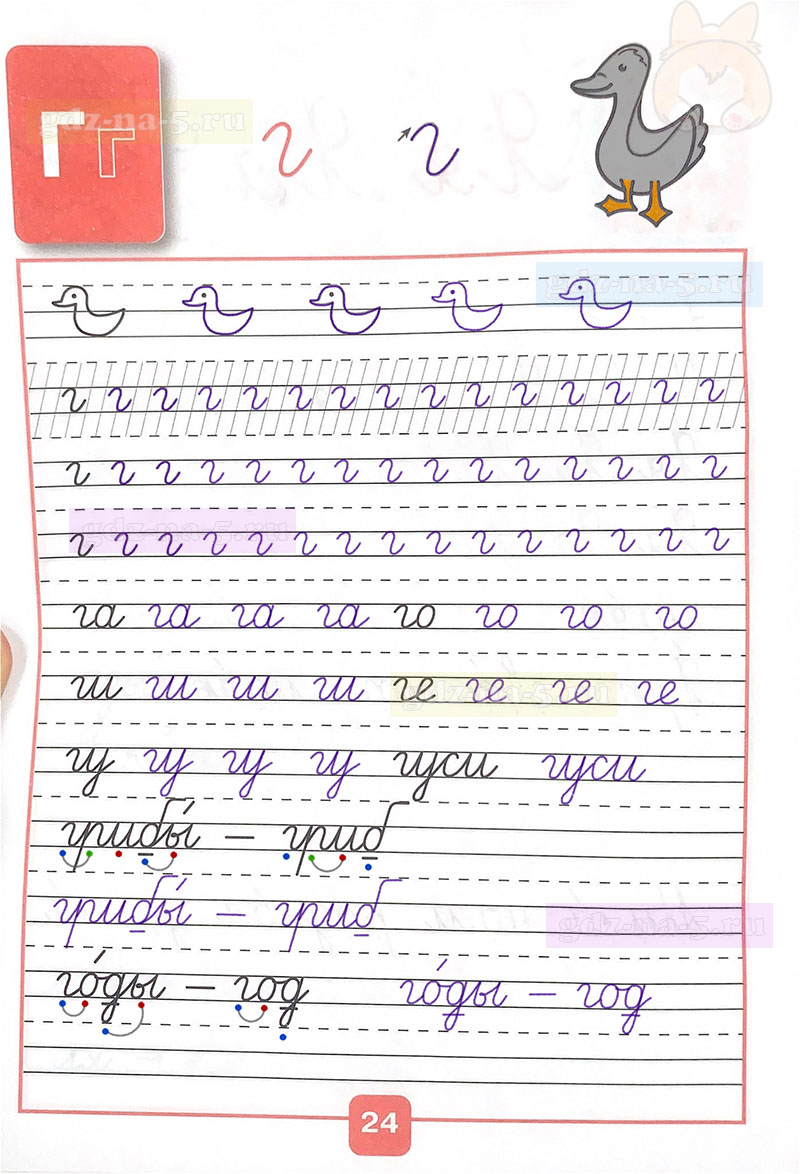 Гг г г
г г г г г г г г г г г г г г г
г г г г г г г г г г г г г г г
г г г г г г г г г г г г г г г
га га га га го го го го
ги ги ги ги ге ге ге ге
гу гу гу гу гуси гуси
грибы́ – гриб
грибы́ – гриб
го́ды – год го́ды – год
24
gdz-na-5.ru
gdz-na-5.ru
gdz-na-5.ru
gdz-na-5.ru
gdz-na-5.ru